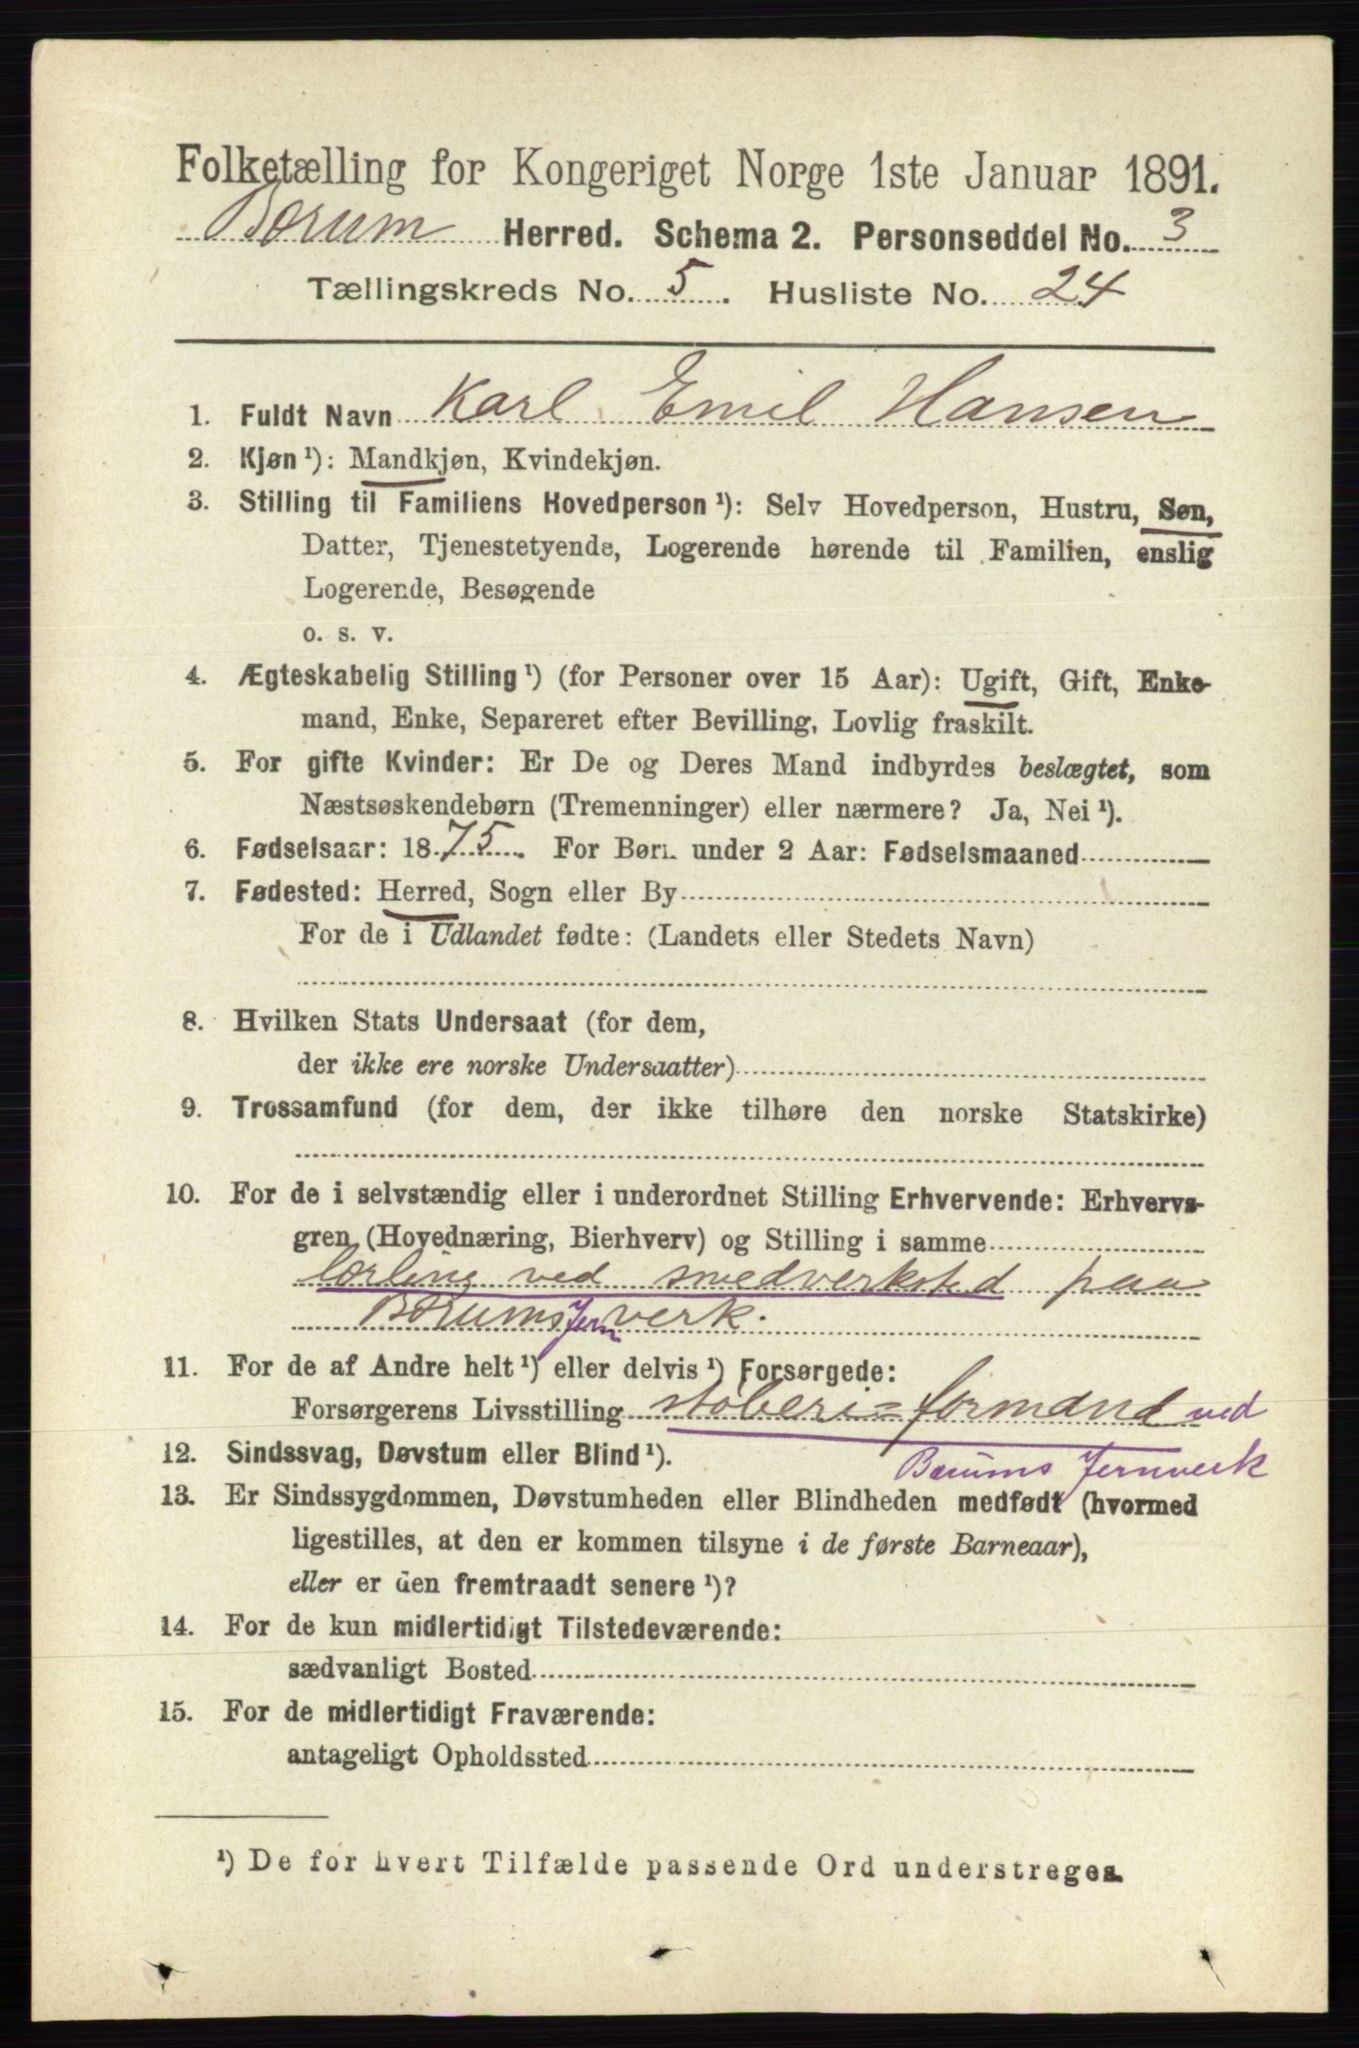 Folketælling for Kongeriget Norge 1ste Januar 1891.
Bærum Herred. Schema 2. Personseddel No. 3
Tællingskreds No. 5. Husliste No. 24
1. Fuldt Navn Karl Emil Hansen
2. Kjøn ¹): Mandkjøn, Kvindekjøn.
3. Stilling til Familiens Hovedperson ¹): Selv Hovedperson, Hustru, Søn,
Datter, Tjenestetyende, Logerende hørende til Familien, enslig
Logerende, Besøgende
o. s. v.
4. Ægteskabelig Stilling ¹) (for Personer over 15 Aar): Ugift, Gift, Enke-
mand, Enke, Separeret efter Bevilling, Lovlig fraskilt.
5. For gifte Kvinder: Er De og Deres Mand indbyrdes beslægtet, som
Næstsøskendebørn (Tremenninger) eller nærmere? Ja, Nei ¹).
6. Fødselsaar: 1875. For Børn under 2 Aar: Fødselsmaaned
7. Fødested: Herred, Sogn eller By
For de i Udlandet fødte: (Landets eller Stedets Navn)
8. Hvilken Stats Undersaat (for dem,
der ikke ere norske Undersaatter)
9. Trossamfund (for dem, der ikke tilhøre den norske Statskirke)
10. For de i selvstændig eller i underordnet Stilling Erhvervende: Erhvervs-
gren (Hovednæring, Bierhverv) og Stilling i samme
lærling ved smedverksted paa
Bærums Jernverk.
11. For de af Andre helt ¹) eller delvis ¹) Forsørgede:
Forsørgerens Livsstilling støberi=formand ved
Bærums Jernverk
12. Sindssvag, Døvstum eller Blind ¹).
13. Er Sindssygdommen, Døvstumheden eller Blindheden medfødt (hvormed
ligestilles, at den er kommen tilsyne i de første Barneaar),
eller er den fremtraadt senere ¹)?
14. For de kun midlertidigt Tilstedeværende:
sædvanligt Bosted
15. For de midlertidigt Fraværende:
antageligt Opholdssted
¹) De for hvert Tilfælde passende Ord understreges.